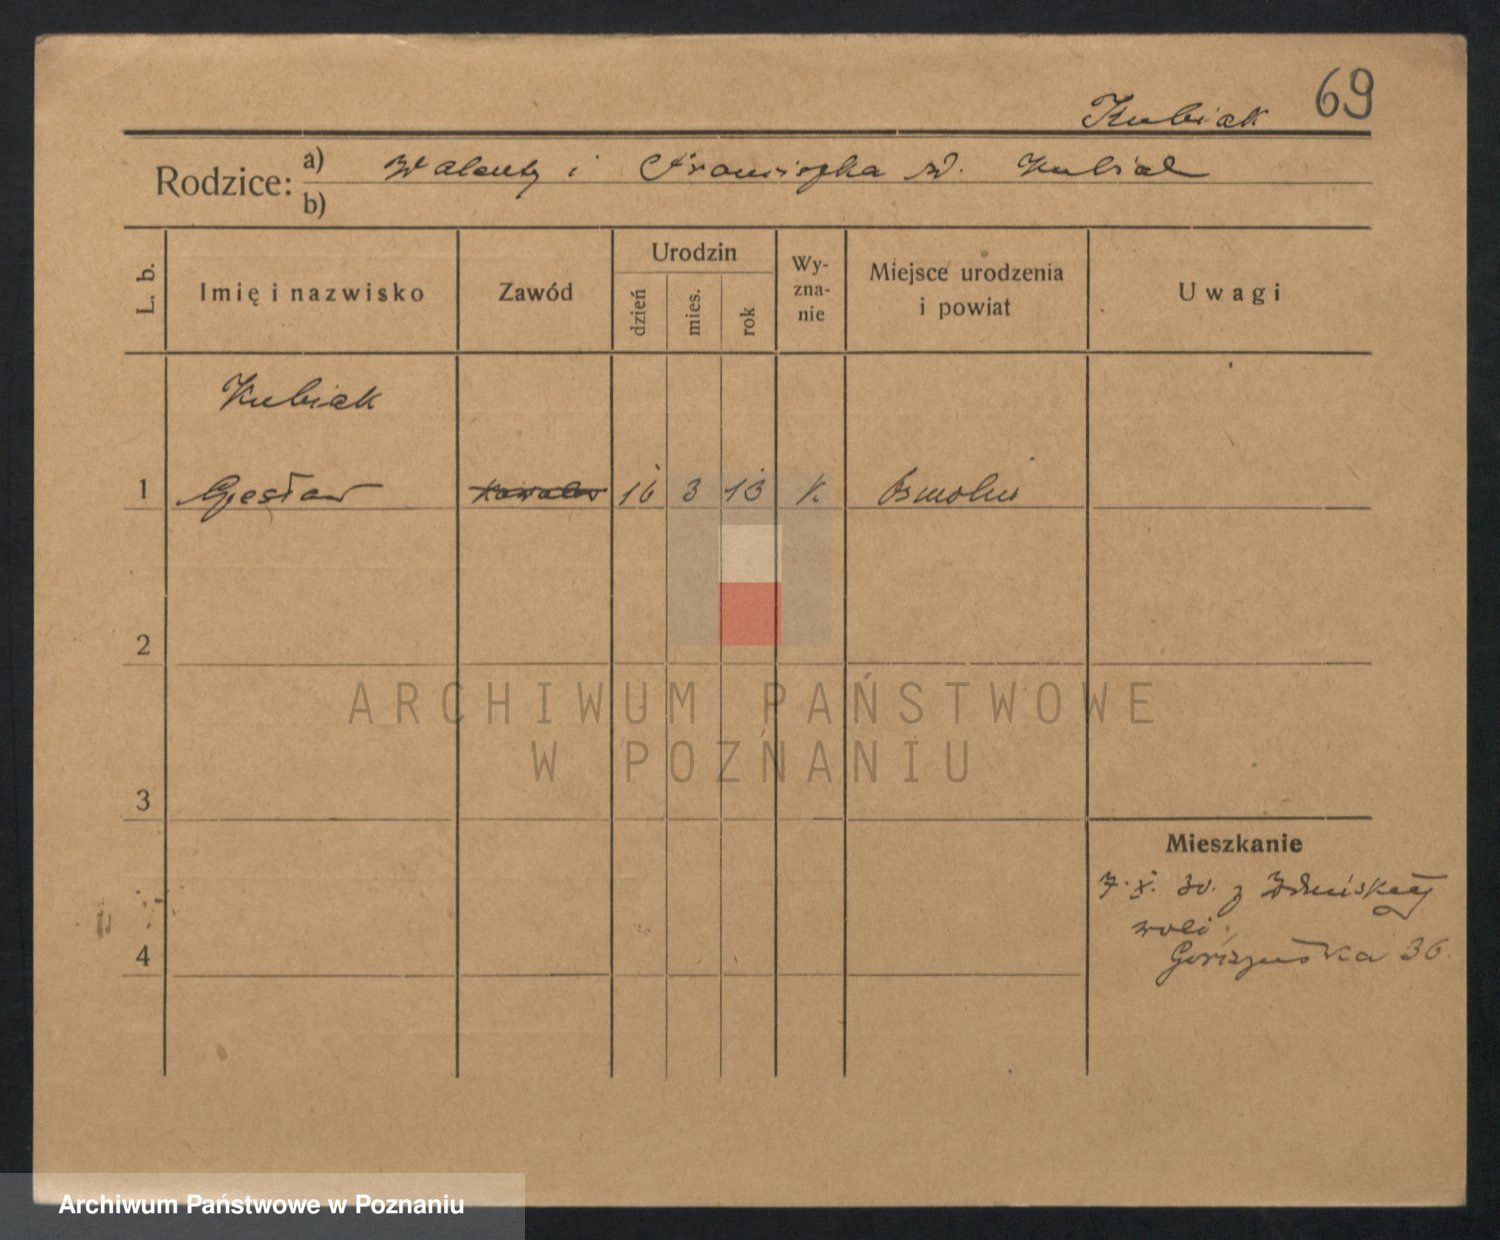 Kubiak 69
Rodzice: a) Walenty i Franciszka z d. Kubiak
b)
L. b. Imię i nazwisko Zawód Urodzin dzień mies. rok Wy-zna-nie Miejsce urodzenia i powiat Uwagi
Kubiak
1 Czesław 16 3 13 k. Osmolin
2
ARCHIWUM PAŃSTWOWE
W POZNANIU
3
Mieszkanie
7. X. 30. z Zduńskiej
woli.
4
36.
Archiwum Państwowe w Poznaniu